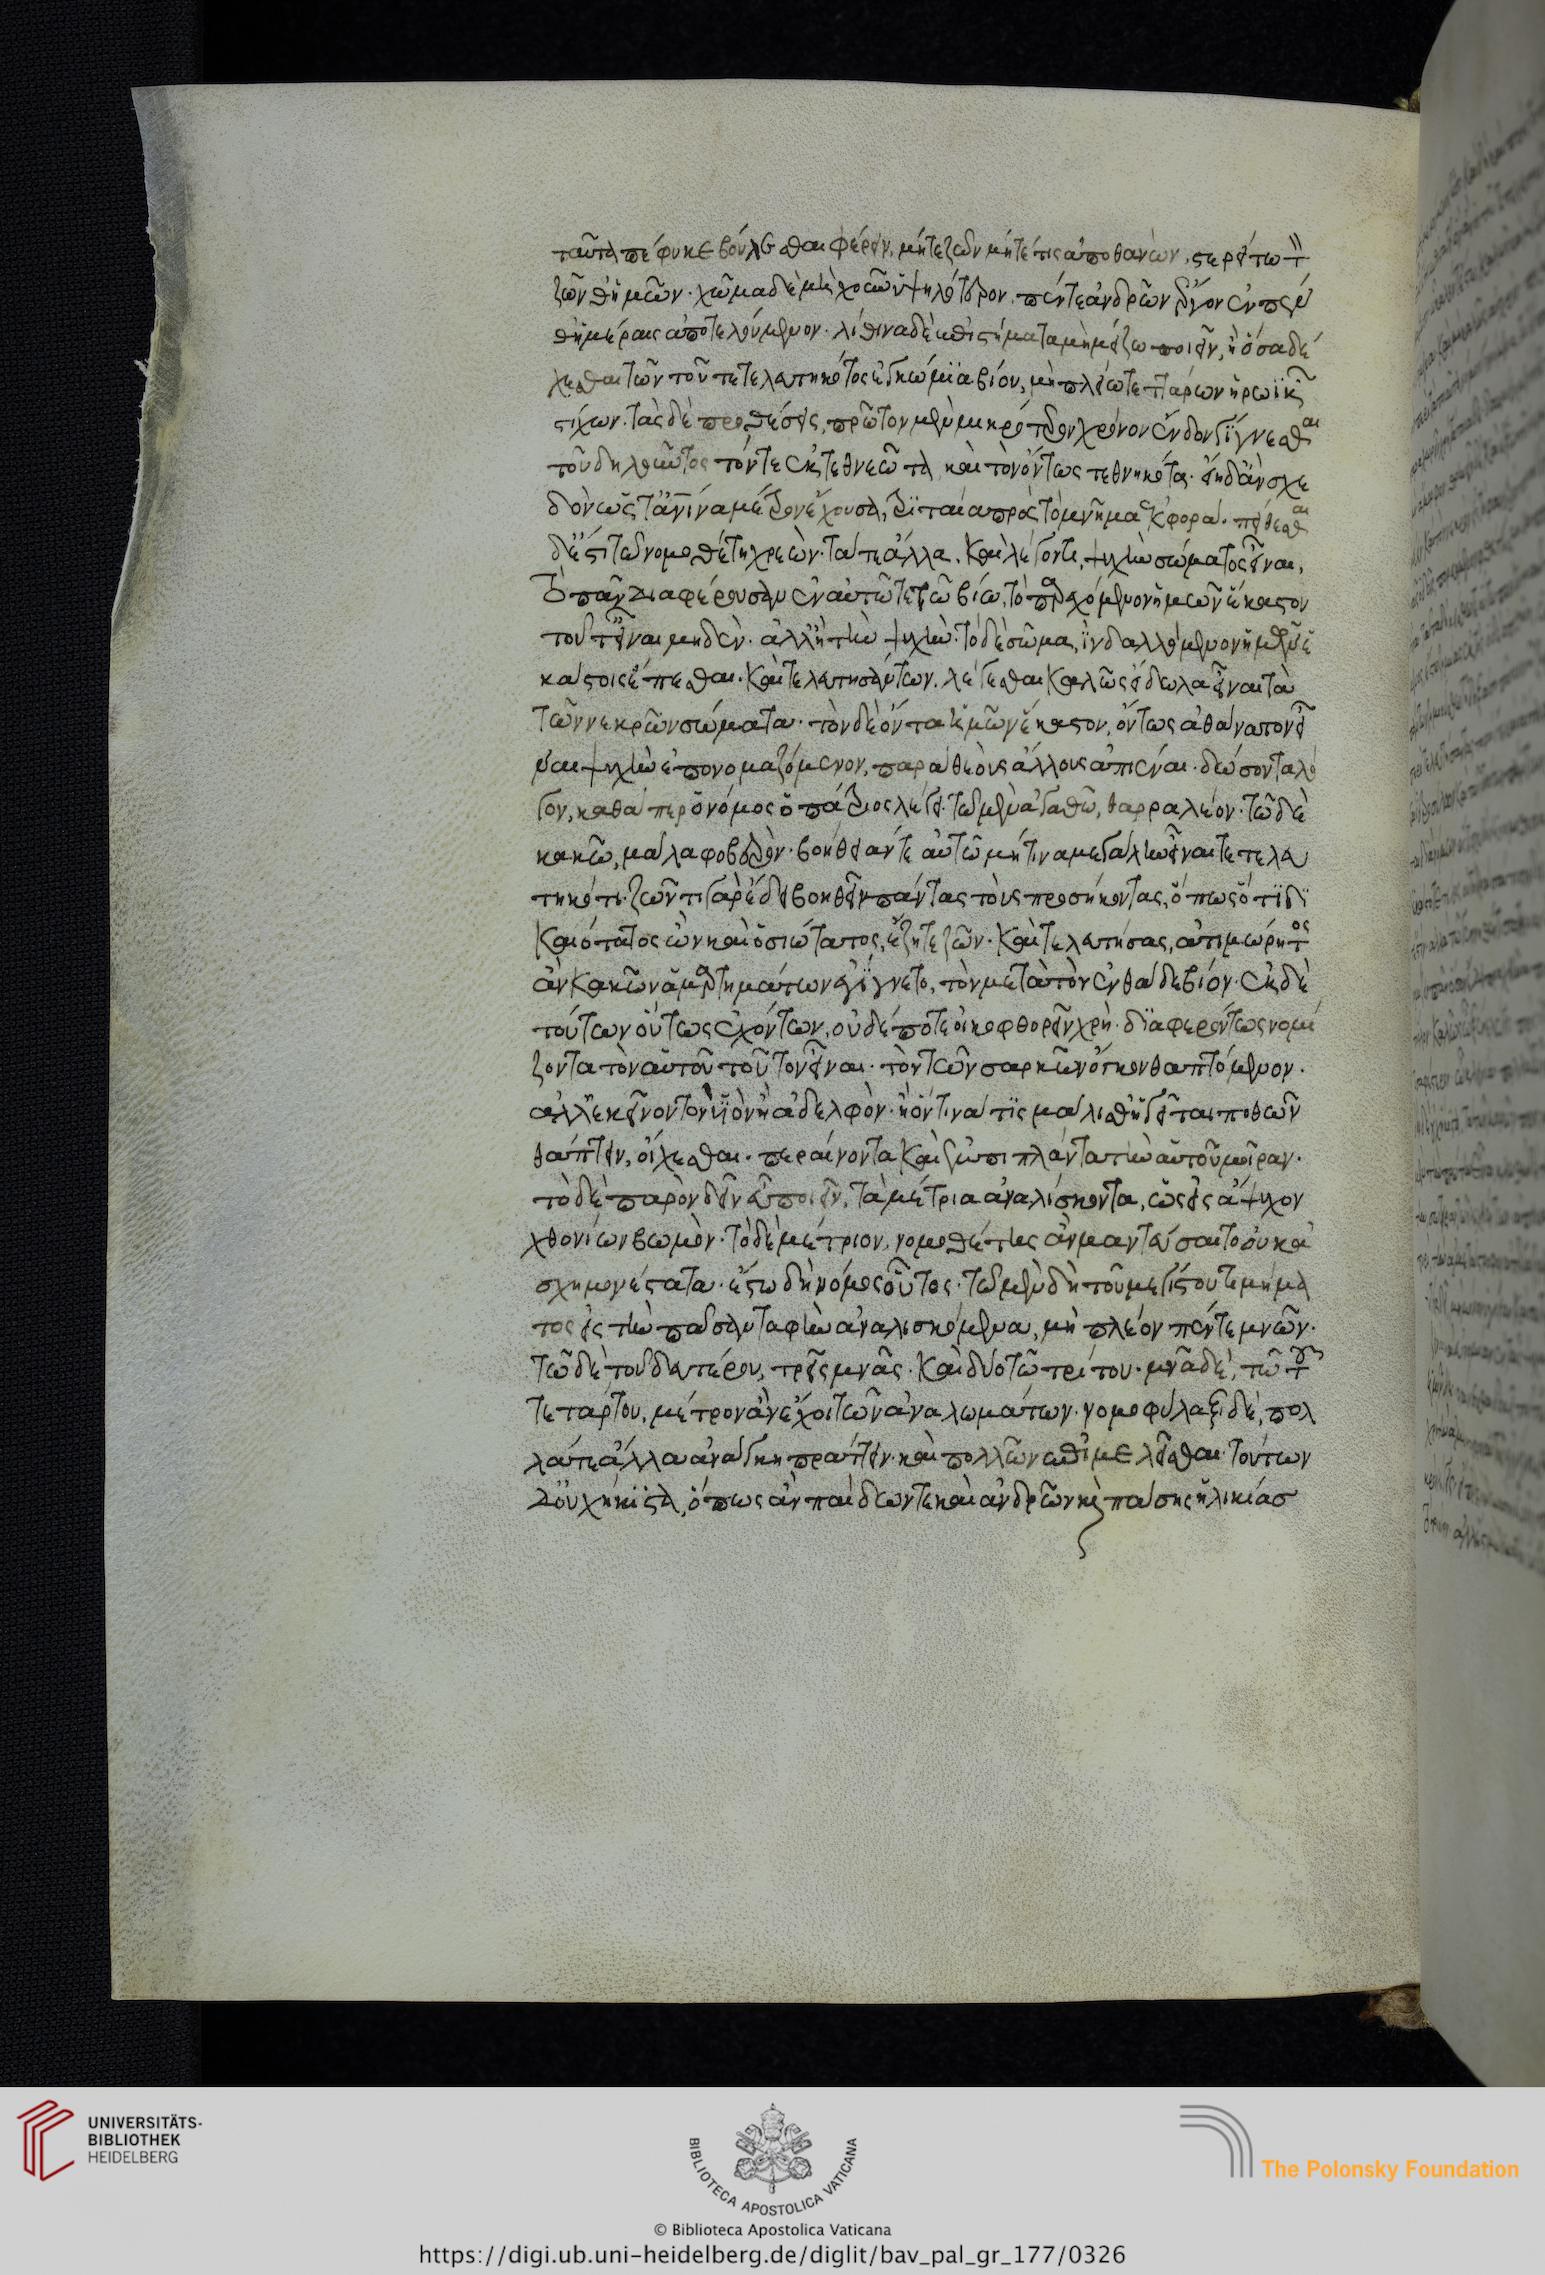 ταῦτα πέφυκε βούλεσθαι φέρειν, μήτε ζῶν μήτέ τις ἀποθανὼν, στερείτω τὸν
ζῶνθ' ἡμῶν. χῶμα δὲ μὴ χοῦν ὑψηλότερον, πέντε ἀνδρῶν ἔργον ἐν πέν
θ' ἡμέραις ἀποτελούμενον. λίθινα δὲ ἐπιστήματα μὴ μείζω ποιεῖν, ἢ ὅσα δέ
χεσθαι τῶν τοῦ τετελευτηκότος ἐγκώμια βίου, μὴ πλείω τεττάρων ἡρωϊκῶν
στίχων. τὰς δὲ προθέσεις, πρῶτον μὲν μὴ μακρότερον χρόνον ἔνδον γίγνεσθαι
τοῦ δηλοῦντος τόν τε ἐκτεθνεῶτα καὶ τὸν ὄντως τεθνηκότα. εἴη δ' ἂν σχε
δὸν ὡς τἀνθρώπινα μέτρον ἔχουσα, τριταία πρὸς τὸ μνῆμα ἐκφορά. πείθεσθαι
δ' ἐστὶ τῷ νομοθέτῃ χρεὼν τά τε ἄλλα, καὶ λέγοντι, ψυχὴν σώματος εἶναι,
τὸ πᾶν διαφέρουσαν ἐν αὐτῷ τε τῷ βίῳ, τὸ παρεχόμενον ἡμῶν ἕκαστον
τοῦτ' εἶναι μηδὲν ἀλλ' ἢ τὴν ψυχήν. τὸ δὲ σῶμα, ἰνδαλλόμενον ἡμῶν ἑ
κάστοις ἕπεσθαι. καὶ τελευτησάντων, λέγεσθαι καλῶς εἴδωλα εἶναι τὰ
τῶν νεκρῶν σώματα. τὸν δὲ ὄντα ἡμῶν ἕκαστον, ὄντως ἀθάνατον εἶ
ναι ψυχὴν ἐπονομαζόμενον, παρὰ θεοὺς ἄλλους ἀπιέναι δώσοντα λό
γον, καθάπερ ὁ νόμος ὁ πάτριος λέγει. τῷ μὲν ἀγαθῷ, θαρραλέον. τῷ δὲ
κακῷ, μάλα φοβερόν. βοήθειάν τε αὐτῷ μή τινα μεγάλην εἶναι τετελευ
τηκότι. ζῶντι γὰρ ἔδει βοηθεῖν πάντας τοὺς προσήκοντας, ὅπως ὅτι δι
καιότατος ὢν καὶ ὁσιώτατος, ἔζη τε ζῶν. καὶ τελευτήσας, ἀτιμώρητος
ἂν κακῶν ἁμαρτημάτων ἐγίγνετο, τὸν μετὰ τὸν ἐνθάδε βίον. ἐκ δὲ
τούτων οὕτως ἐχόντων, οὐδέποτε οἰκοφθορεῖν χρὴ. διαφερόντως νομί
ζοντα τὸν αὑτοῦ τοῦτον εἶναι τὸν τῶν σαρκῶν ὄγκον θαπτόμενον.
ἀλλ' ἐκεῖνον τὸν υἱὸν ἢ ἀδελφὸν. ἢ ὅντινά τις μάλισθ' ἡγεῖται ποθῶν
θάπτειν, οἴχεσθαι. περαίνοντα καὶ ἐμπιπλάντα τὴν αὑτοῦ μοῖραν.
τὸ δὲ παρὸν δεῖν εὖ ποιεῖν, τὰ μέτρια ἀναλίσκοντα, ὡς εἰς ἄψυχον
χθονίων βωμόν. τὸ δὲ μέτριον, νομοθέτης ἂν μαντεύσαιτο οὐκ ἀ
σχημονέστατα. ἔστω δὴ νόμος οὗτος. τῷ μὲν δὴ τοῦ μεγίστου τιμήμα
τος εἰς τὴν πᾶσαν ταφὴν ἀναλισκόμενα, μὴ πλέον πέντε μνῶν.
τῷ δὲ τοῦ δευτέρου, τρεῖς μνᾶς. καὶ δύο τῷ τρίτου. μνᾶ δὲ, τῷ τοῦ
τετάρτου, μέτρον ἂν ἔχοι τῶν ἀναλωμάτων. νομοφύλαξι δὲ, πολ
λά τε ἄλλα ἀνάγκη πράττειν. καὶ πολλῶν ἐπιμελεῖσθαι. τούτων
δ' οὐχ ἥκιστα, ὅπως ἂν παίδων τε καὶ ἀνδρῶν καὶ πάσης ἡλικίας
UNIVERSITÄTS-
BIBLIOTHEK
HEIDELBERG
BIBLIOTECA APOSTOLICA VATICANA
The Polonsky Foundation
© Biblioteca Apostolica Vaticana
https://digi.ub.uni-heidelberg.de/diglit/bav_pal_gr_177/0326